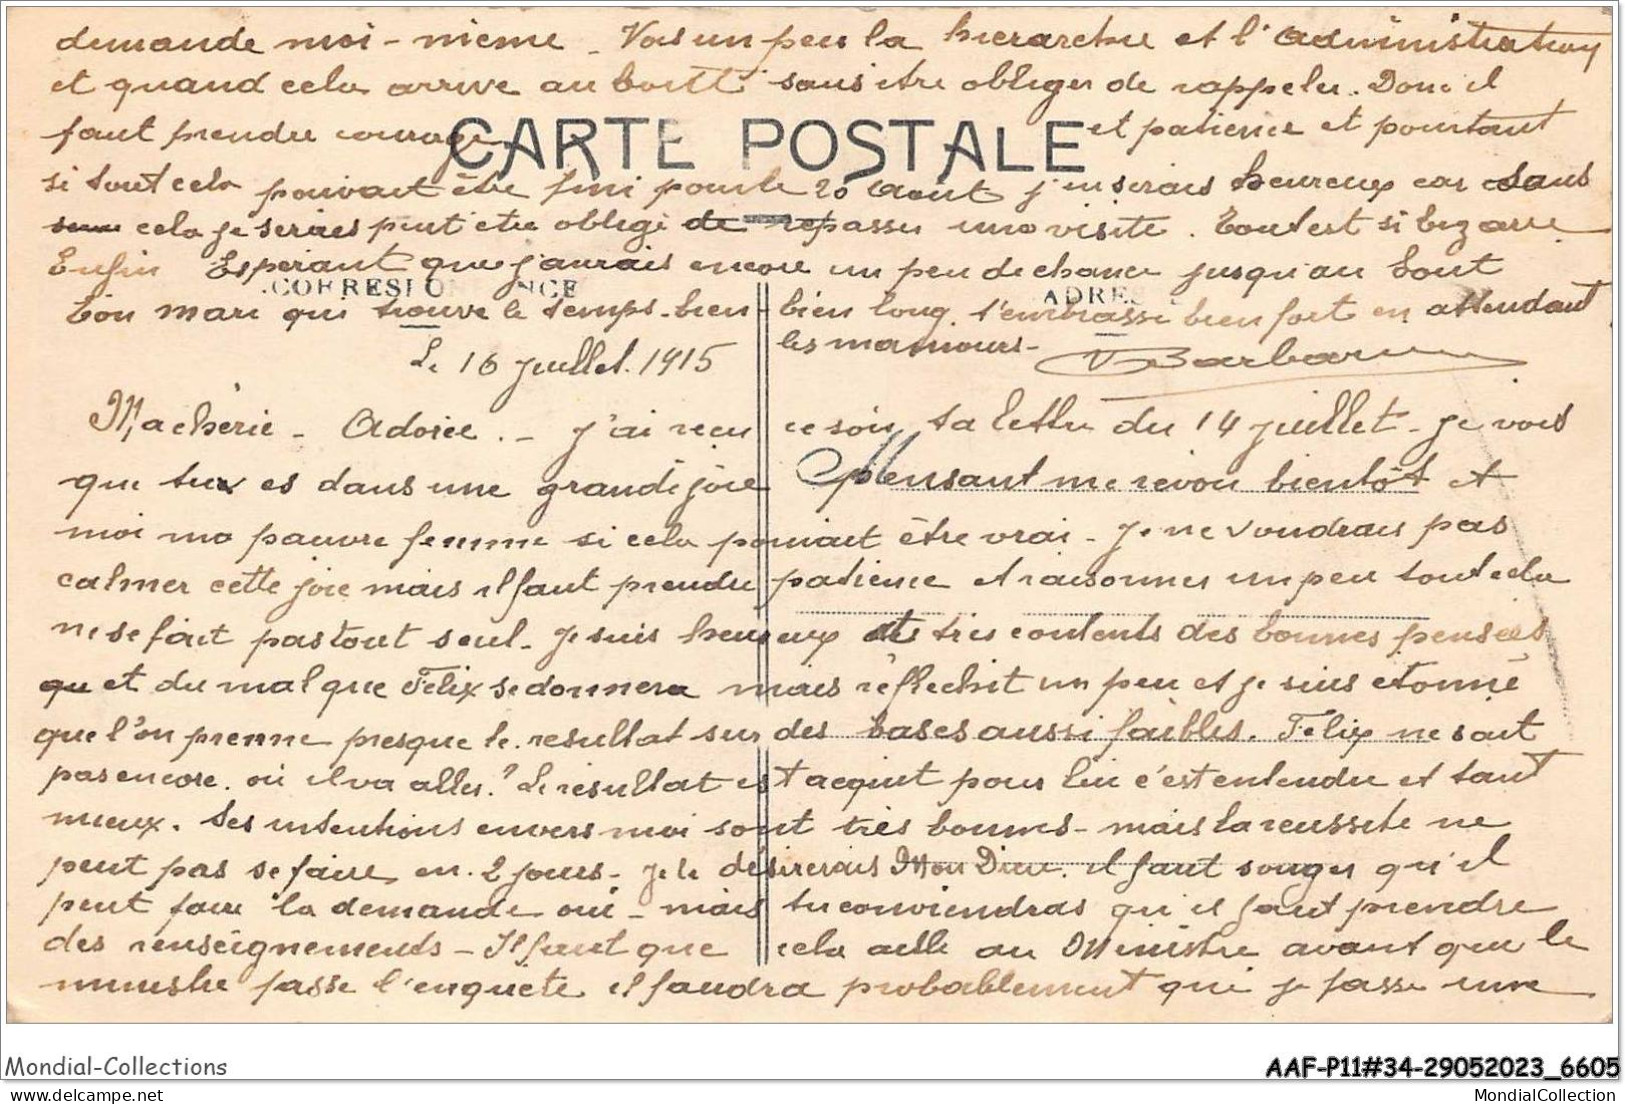 demande moi-même - Vois un peu la hierarchie et l'administration
et quand cela arrive au boutt sans etre obliger de rappeler. Donc il
faut prendre courage et patience et pourtant
CARTE POSTALE
si tout cela pouvait être fini pour le 20 Août j'en serais heureux car sans
cela je serais peut etre obligé de repasser une visite. Tout est si bizarre
Enfin Esperant que j'aurais encore un peu de chance jusqu'au bout
CORRESPONDANCE ADRESSE
Ton mari qui trouve le temps bien - bien long t'embrasse bien fort en attendant
les mamours -
Barbarin
Le 16 Juillet 1915
Ma chérie - Adorée. - J'ai reçu ce soir ta lettre du 14 juillet - Je vois
que tu es dans une grande joie Pensant me revoir bientôt et
moi ma pauvre femme si cela pouvait être vrai - Je ne voudrais pas
calmer cette joie mais il faut prendre patience et raisonner un peu tout cela
ne se fait pas tout seul - Je suis heureux et tres contents des bonnes pensées
et du mal que Felix se donnera mais réflechit un peu et je suis etonné
que l'on prenne presque le resultat sur des bases aussi faibles. Felix ne sait
pas encore où il va aller? Le résultat est acquit pour lui c'est entendu et tant
mieux. Ses intentions envers moi sont très bonnes - mais la reussite ne
peut pas se faire en 2 jours - je le désirerais Mon Dieu. il faut songer qu'il
peut faire la demande oui - mais tu conviendras qu'il faut prendre
des renseignements - Il faut que cela aille au Ministre avant que le
ministre fasse l'enquête il faudra probablement que je fasse une
Mondial-Collections AAF-P11#34-29052023_6605
www.delcampe.net MondialCollection